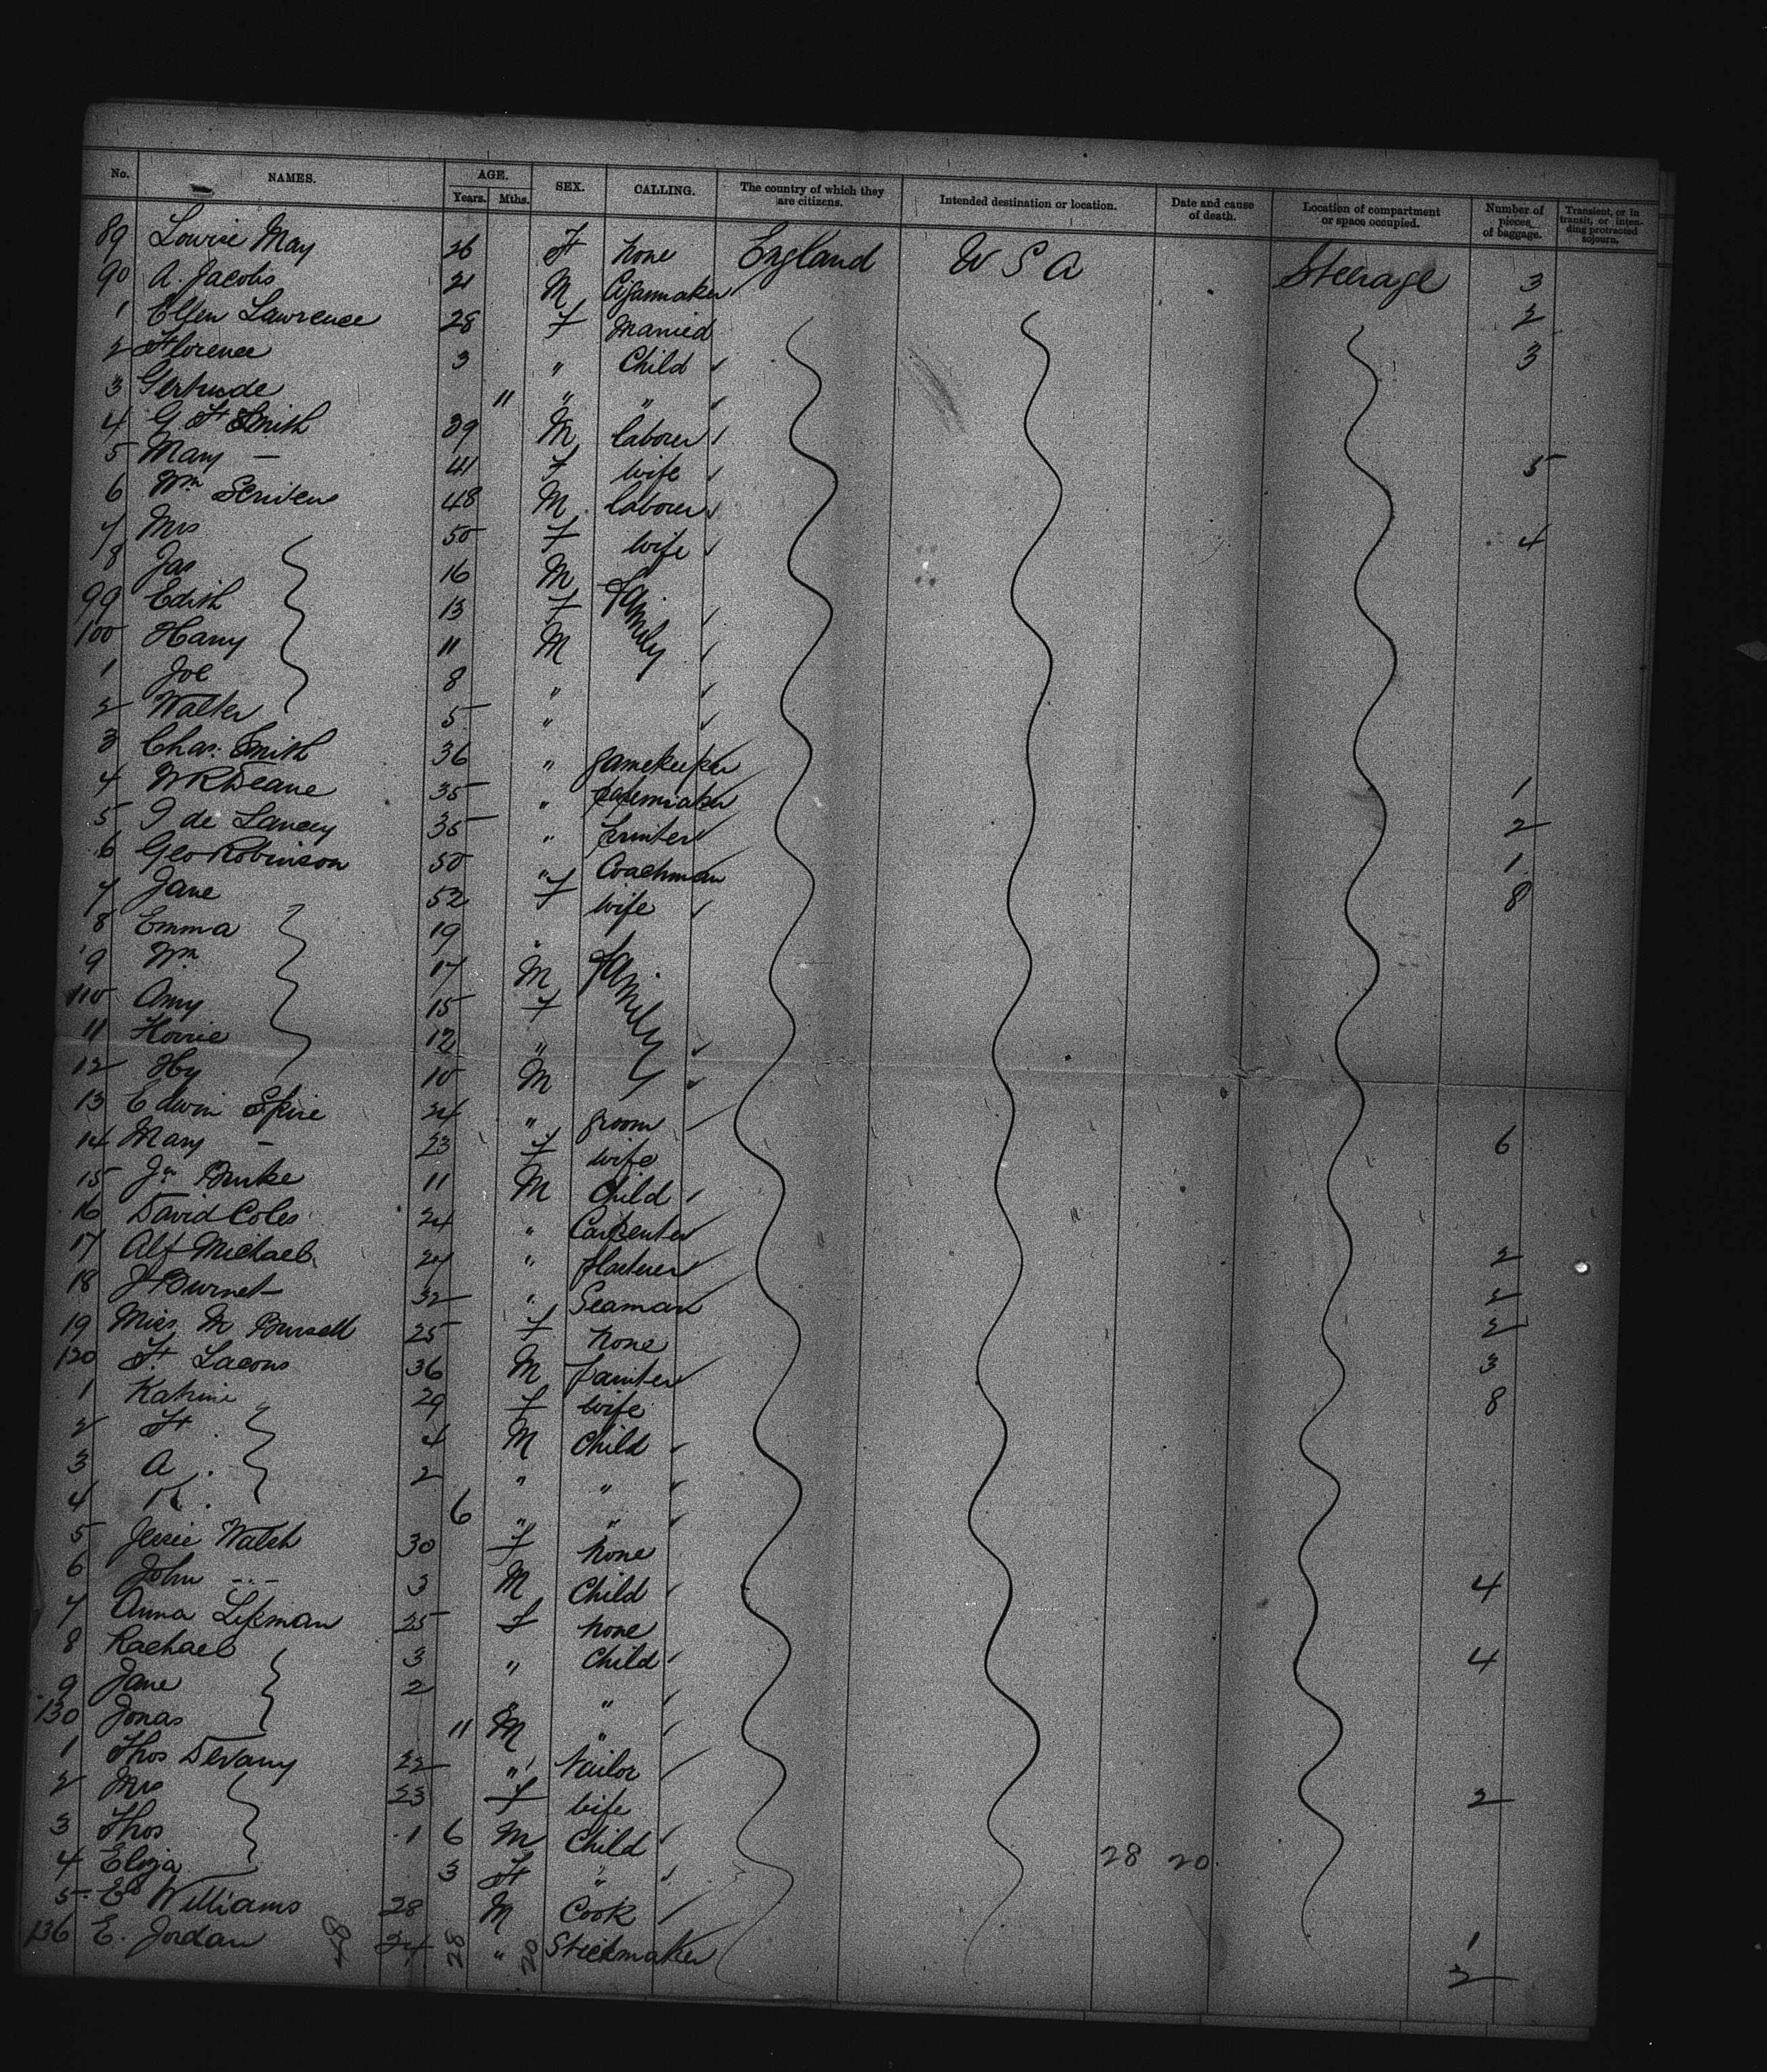 No. NAMES. AGE. Years. Mths. SEX. CALLING. The country of which they are citizens. Intended destination or location. Date and cause of death. Location of compartment or space occupied. Number of pieces of baggage. Transient, or in transit, or intending protracted sojourn.
89 Louise May 26 F none England U S A Steerage 3
90 A. Jacobs 21 M Cigarmaker 2
1 Ellen Lawrence 28 F Married 3
2 Florence 3 " Child
3 Gertrude 11 " "
4 G F Smith 39 M laborer 5
5 Mary — 41 F wife
6 Wm Scriven 48 M laborer 4
7 Mrs 50 F wife
8 Jas 16 M Family
99 Edith 13 F
100 Harry 11 M
1 Joe 8 "
2 Walter 5 "
3 Chas. Smith 36 " gamekeeper 1
4 W R Deane 35 " 2
5 J de Lancey 35 " printer 1
6 Geo Robinson 50 " Coachman 8
7 Jane 52 F wife
8 Emma 19 " Family
9 Wm 17 M
110 Amy 15 F
11 12 "
12 Hy 10 M
13 Edwin Spire 24 " groom 6
14 Mary — 23 F wife
15 Jn Burke 11 M Child
16 David Coles 24 " Carpenter 2
17 Alf Michael 24 " 2
18 Burnet 32 " Seaman 2
19 Miss M 25 F none 3
120 F. Lacons 36 M painter 8
1 29 F wife
2 F. 4 M Child
3 A. 2 " "
4 6 " "
5 Jessie Walsh 30 F none 4
6 John --- 3 M Child
7 Anna Lipman 25 F none 4
8 Rachael 3 " Child
9 Jane 2 " "
130 Jonas 11 M "
1 Thos Devany 22 " Tailor 2
2 Mrs 23 F wife
3 Thos 1 6 M Child
4 Eliza 3 F " 28 20
5 Ed Williams 28 M Cook 1
136 E. Jordan 48 34 28 " 20 Stickmaker 2